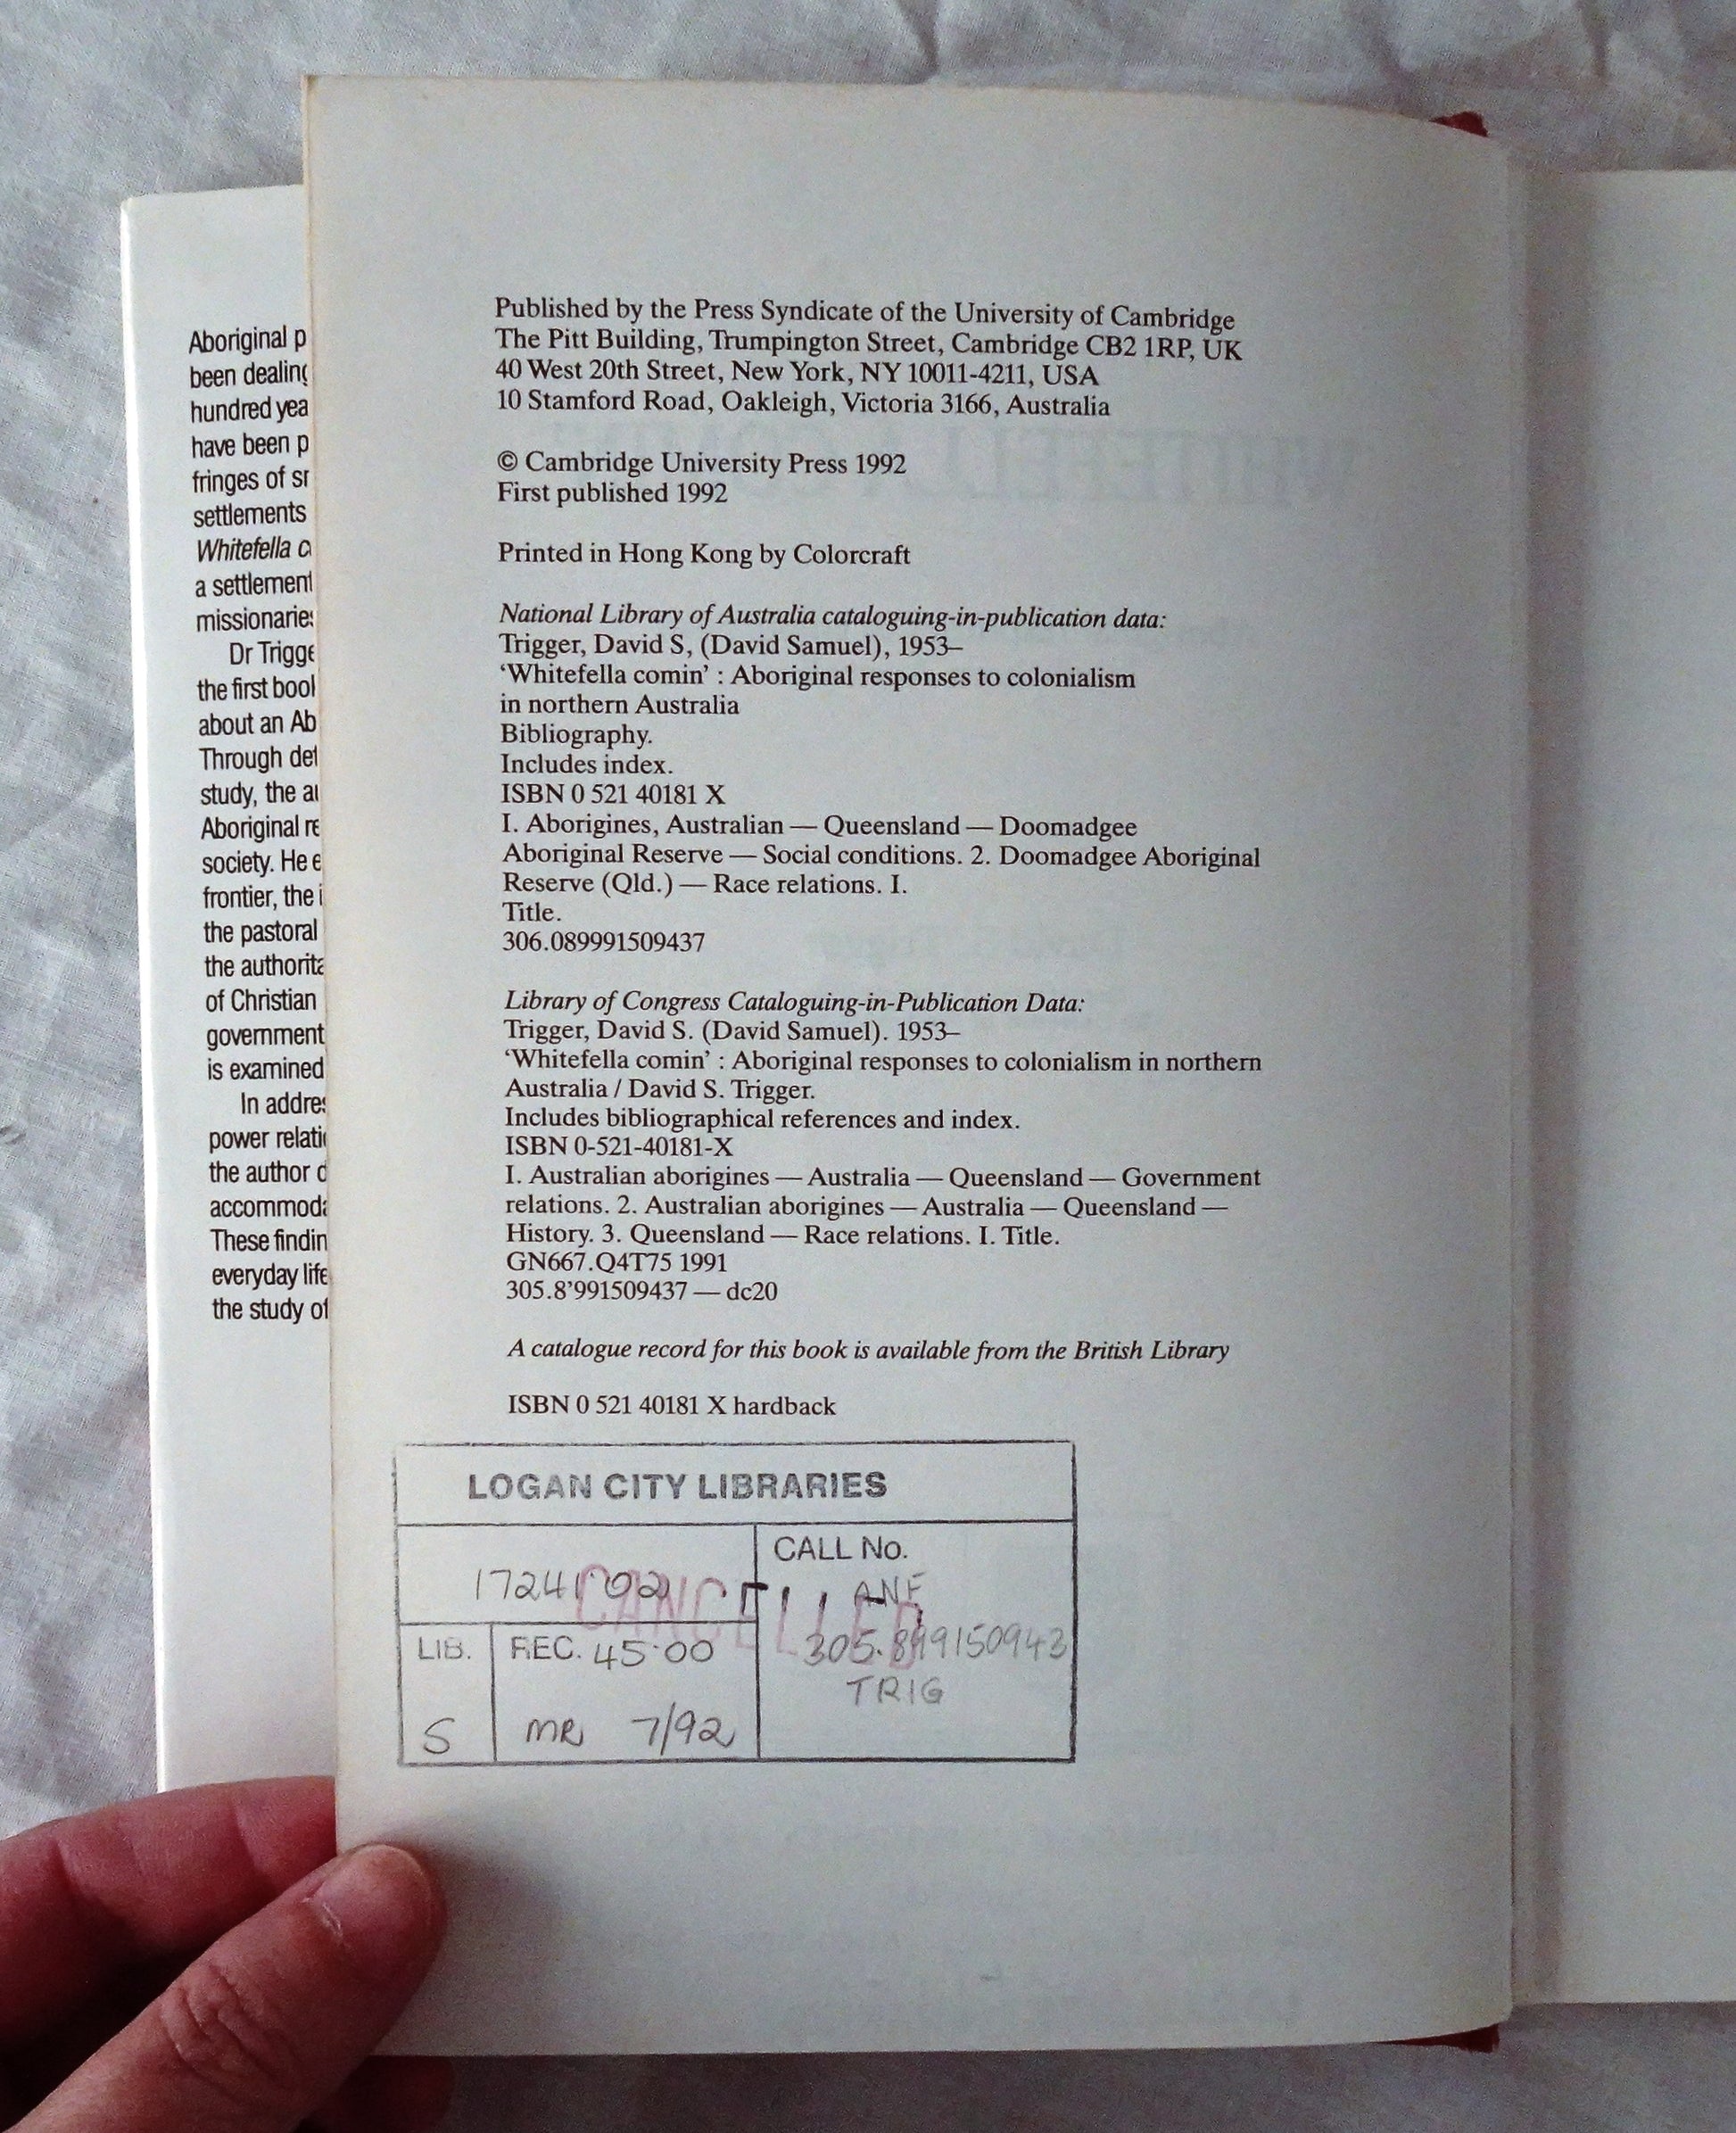 Aboriginal p
been dealing
hundred yea
have been p
fringes of sr
settlements
Whitefella c
a settlement
missionaries
Dr Trigge
the first bool
about an Ab
Through det
study, the au
Aboriginal re
society. He e
frontier, the i
the pastoral
the authorita
of Christian
government
is examined
In addres
power relati
the author d
accommoda
These findin
everyday life
the study of
Published by the Press Syndicate of the University of Cambridge
The Pitt Building, Trumpington Street, Cambridge CB2 1RP, UK
40 West 20th Street, New York, NY 10011-4211, USA
10 Stamford Road, Oakleigh, Victoria 3166, Australia
© Cambridge University Press 1992
First published 1992
Printed in Hong Kong by Colorcraft
National Library of Australia cataloguing-in-publication data:
Trigger, David S, (David Samuel), 1953–
‘Whitefella comin’ : Aboriginal responses to colonialism
in northern Australia
Bibliography.
Includes index.
ISBN 0 521 40181 X
I. Aborigines, Australian — Queensland — Doomadgee
Aboriginal Reserve — Social conditions. 2. Doomadgee Aboriginal
Reserve (Qld.) — Race relations. I.
Title.
306.089991509437
Library of Congress Cataloguing-in-Publication Data:
Trigger, David S. (David Samuel). 1953–
‘Whitefella comin’ : Aboriginal responses to colonialism in northern
Australia / David S. Trigger.
Includes bibliographical references and index.
ISBN 0-521-40181-X
I. Australian aborigines — Australia — Queensland — Government
relations. 2. Australian aborigines — Australia — Queensland —
History. 3. Queensland — Race relations. I. Title.
GN667.Q4T75 1991
305.8’991509437 — dc20
A catalogue record for this book is available from the British Library
ISBN 0 521 40181 X hardback
LOGAN CITY LIBRARIES
CALL No.
ANF
CANCELLED
LIB.
REC. 45·00
TRIG
S
MR 7/92